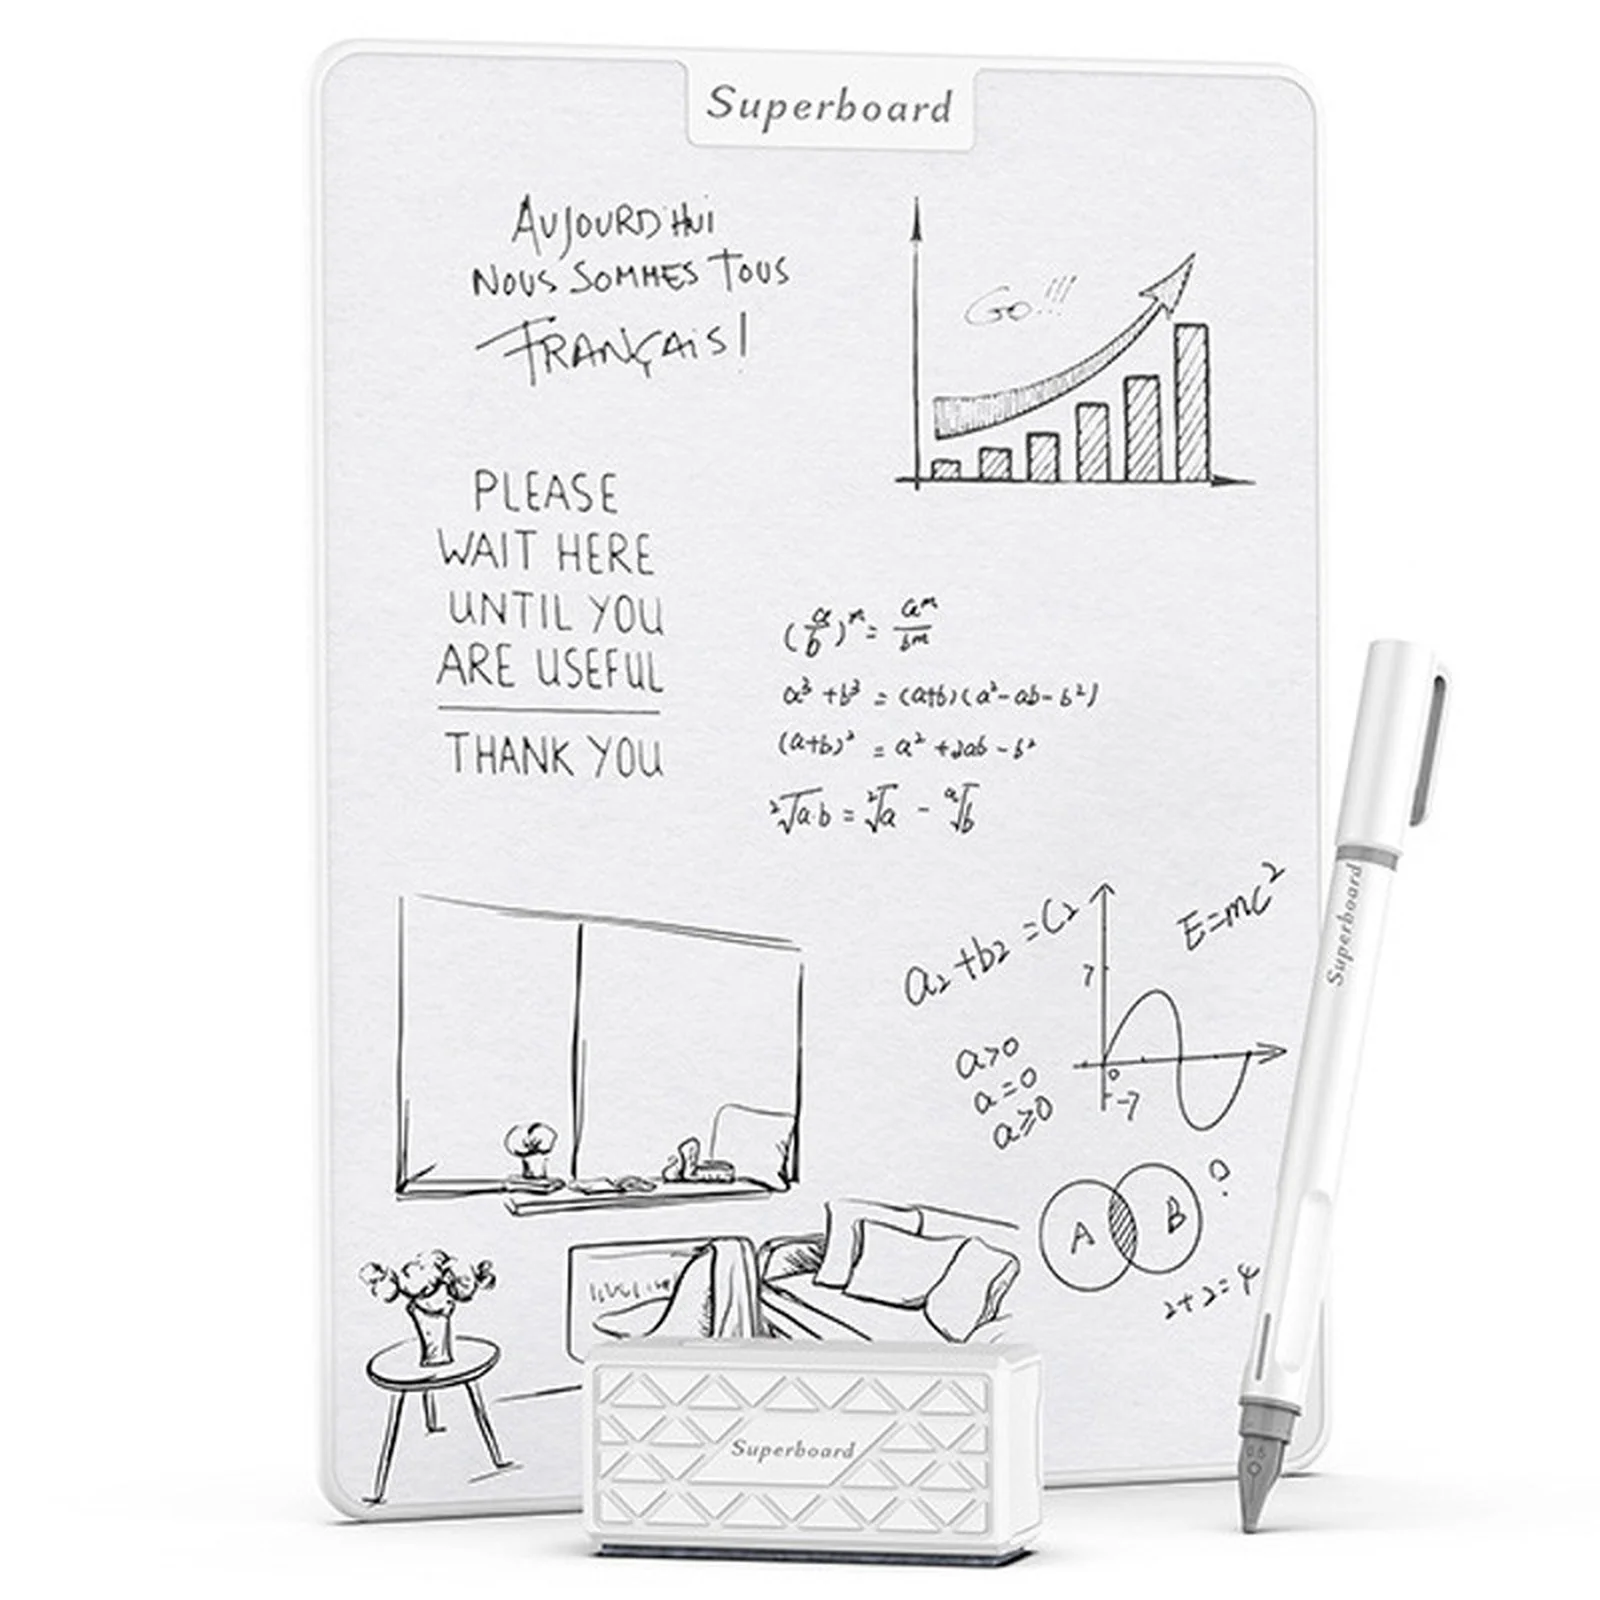 Superboard
AUJOURD'HUI
NOUS SOMMES TOUS
FRANÇAIS!
Go!!!
PLEASE
WAIT HERE
UNTIL YOU
ARE USEFUL
THANK YOU
(a/b)ᵐ = aᵐ/bᵐ
a³ + b³ = (a+b)(a²-ab-b²)
(a+b)² = a² + 2ab - b²
²√a·b = ²√a - ᵃ√b
a₂+b₂=C₂
E=mc²
7
0
-7
a>0
a=0
a≥0
A B
2+2=4
Superboard
Superboard
0.5